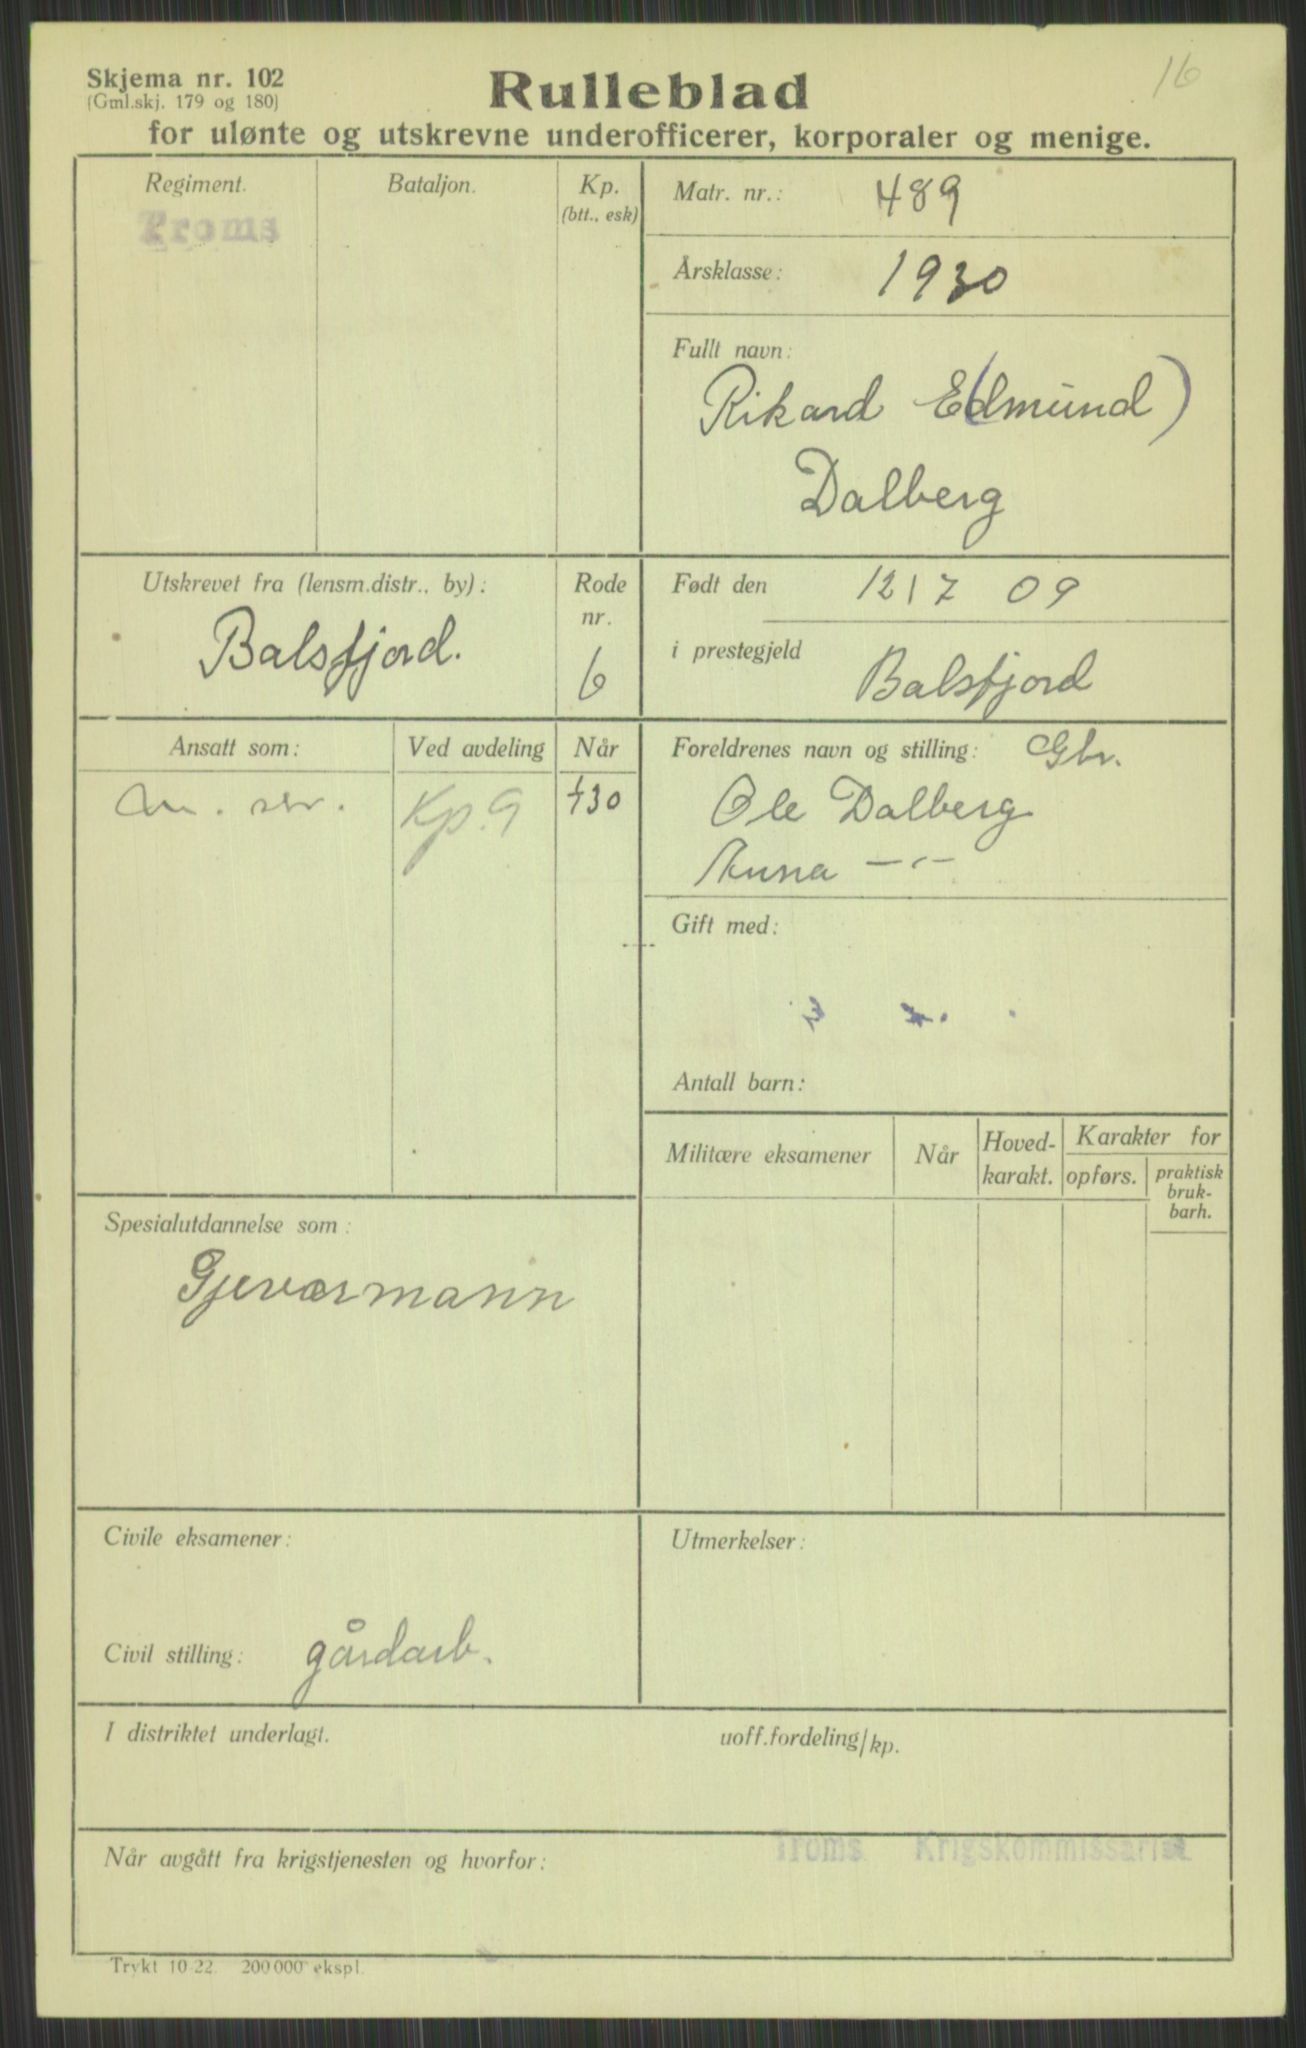 16
Skjema nr. 102
(Gml.skj. 179 og 180)
Rulleblad
for ulønte og utskrevne underofficerer, korporaler og menige.
Regiment.
Troms
Bataljon.
Kp.
(btt., esk)
Matr. nr.: 489
Årsklasse: 1930
Fullt navn:
Rikard E(dmund)
Dalberg
Utskrevet fra (lensm.distr., by):
Balsfjord.
Rode
nr.
6
Født den 12/7 09
i prestegjeld Balsfjord
Ansatt som:
Ved avdeling
Kp. 9
Når
Foreldrenes navn og stilling: Gbr.
Ole Dalberg
Anna —"—
Gift med:
Antall barn:
Militære eksamener
Når
Hoved-
karakt.
Karakter for
opførs.
praktisk
bruk-
barh.
Spesialutdannelse som:
Gjeværmann
Civile eksamener:
Civil stilling: gårdarb.
Utmerkelser:
I distriktet underlagt. uoff.fordeling/kp.
Når avgått fra krigstjenesten og hvorfor:
Troms Krigskommissariat
Trykt 10 22. 200 000 ekspl.